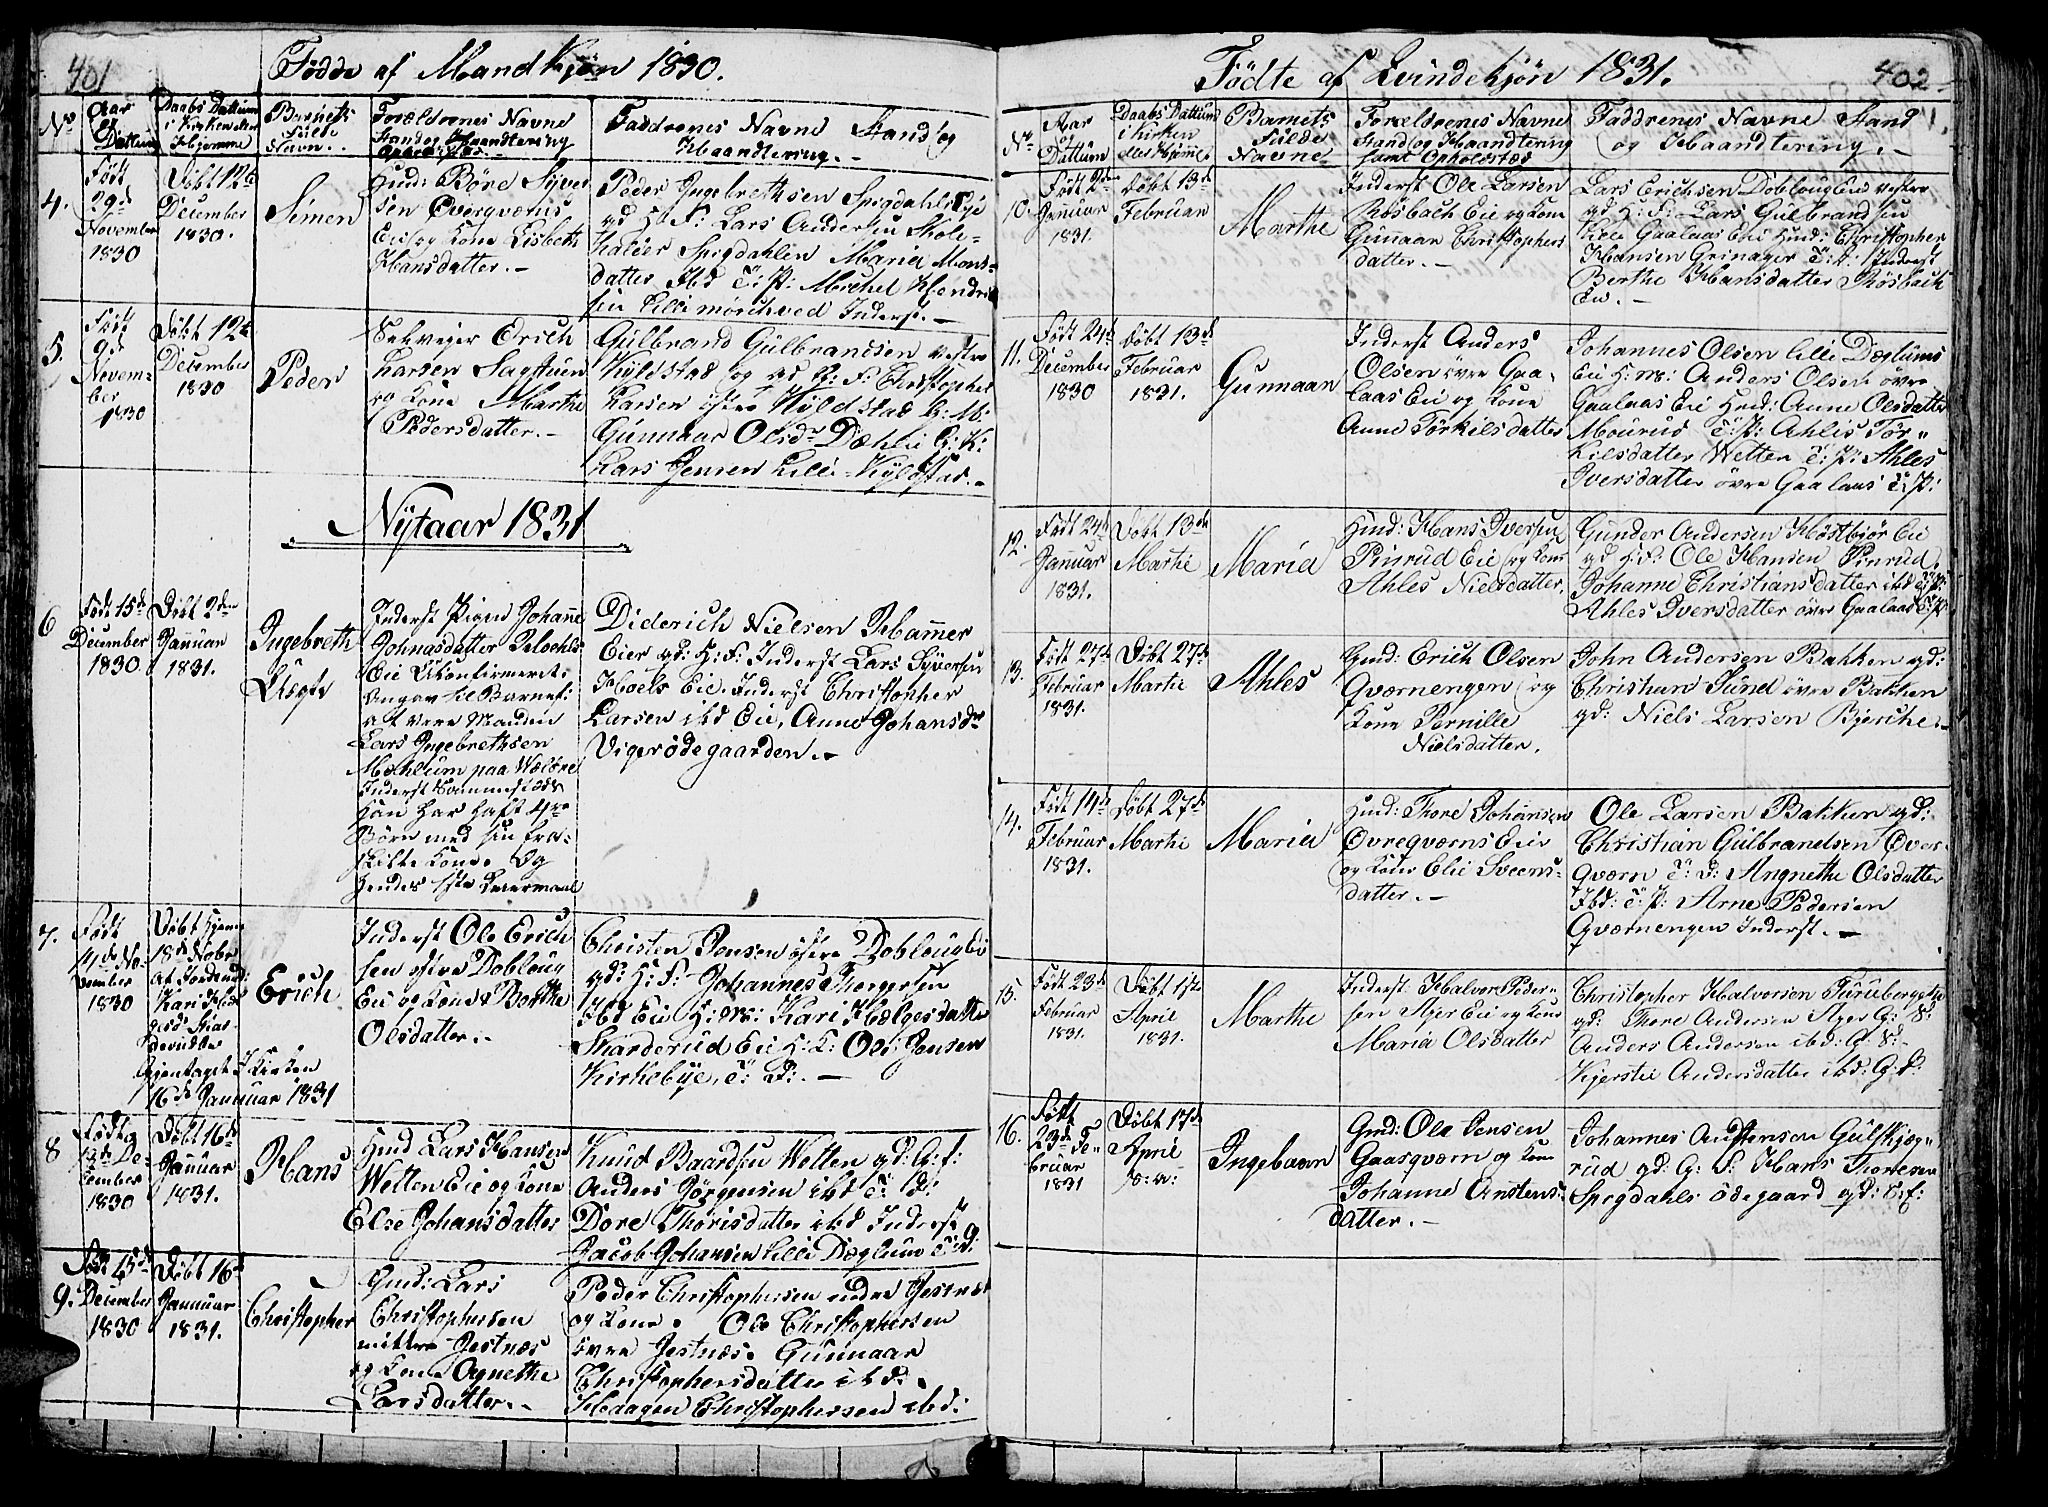 401
Fødde af Mandkjøn 1830.
No
Aar og Dattum
Daabs Dattum i Kirken eller Hjemme
Barnets fulde Navn.
Forældrenes Navne Stand og Haandtering
Faddrenes Navne Stand og Haandtering.
4.
Født
29de
November
1830
Døbt 12te
December
1830.
Simen
Huusmd: Børe Syver
sen Overqværns
Eie og Kone Lisbeth
Hansdatter.
Peder Ingebrethsen Spigdahls Eie
gd H: F: Lars Andersen Skole-
holder Spigdahlen Maria Mons-
datter Ibd T: P: Michel Hendrik
sen Lille mørchved Inderst.
5.
Født
9de
Novem-
ber
1830
Døbt 12te
December
1830
Peder
Selveier Erich
Larsen Sagstuen
og Kone Marthe
Pedersdatter.
Gulbrand Gulbrandsen vestre
Kyldstad og gd G: F: Christopher
Larsen østre Kyldstad G: M:
Gunnaar Olsdr Dæhli G: K:
Lars Jensen Lille Kyldstad.
Nytaar 1831
6
Født 15de
December
1830
Døbt 2den
Januar
1831.
Ingebreth
Uægte
Inderst Pigen Johanne
Johnasdatter
Eie Ukonfirmeret.
Angav til Barnef:
at vere Manden
Lars Ingebrethsen
Mæhlum paa
Inderst
han har haft 4re
Børn med sin fra-
skilte Kone. Og
hendes 1ste Leiermaal
Diderich Nielsen Hammer
Eier gd: H: F: Inderst Lars Syversen
Hoels Eie. Inderst Christopher
Larsen ibd Eie, Anne Johansdr
Vigerødegaarden.
7.
Født
14de No-
vember
1830
Døbt Hjemme
18de Nobr
af Jordemd:
Kari Hel-
gesd Skar-
derudEie
Igientaget I Kirken
16de Januar 1831
Erich
Inderst Ole Erich
sen østre Dobloug
Eie og Kone Berthe
Olsdatter.
Christen Jensen østre Doblougeie
gd: H: F: Johannes Thorgersen
Ibd Eie H: M: Kari Helgesdatter
Skarderud Eie H: K: Ole Jensen
Kirkebye, T: D:
8
Født
De-
cember
1830
Døbt 16de
Januar
1831.
Hans
Huusmd Lars Hansen
Wetten Eie og Kone
Else Johansdatter
Knud Baardsen Wetten gd: G: f:
Anders Jørgensen ibd T: d:
Dore Thorisdatter ibd Inderst
Jacob Johansen Lille Dæglum T: d:
9.
Født 15de
December
1830
Døbt 16de
Januar
1831.
Christopher
Gmd: Lars
Christophersen
mittre Jestnæs
og Kone Agnethe
Larsdatter.
Peder Christophersen nedre Jestnæs
og Kone. Ole Christophersen
øvre Jestnæs. Gunnaar
Christophersdatter ibd.
Haagen Christophersen ibd:
Fødte af Qvindekjøn 1831.
402
No
Aar Dattum
Daabs Dattum i Kirken eller Hjeme
Barnets Fulde Navne
Forældrenes Navne Stand og Haandtering samt Opholdsted
Faddrenes Navne Stand og Haandtering.
10.
Født 2den
Januar
1831.
Døbt 13de
Februar
Marthe
Inderst Ole Larsen
Røsbach Eie og Kone
Gunnaar Christophers
datter.
Lars Erichsen Doblougeie vestre
gd H: F: Lars Gulbrandsen
Lille Gaalaas Eie Huusmd: Christopher
Hansen Grinager T: K: Inderst
Berthe Hansdatter Røsbach
Eie.
11.
Født 24de
December
1830
Døbt 13de
Februar
1831.
Gunnaan
Inderst Anders
Olsen øvre Gaa-
laas Eie og Kone
Anne Torkilsdatter
Johannes Olsen Lille Dæglums
Eie H: M: Anders Olsen øvre
Gaalaas Eie Huusmd: Anne Olsdatter
Mourud T: P: Ahlis Tør-
kilsdatter Wetten T: P: Ahles
Iversdatter øvre Gaalaas T: P:
12.
Født 24de
Januar
1831.
Døbt 13de
Martie
Maria
Huusmd: Hans Iversen
Pinrud Eie og Kone
Ahles Nielsdatter.
Gunder Andersen Høstbiør Eie
gd H: F: Ole Hansen Pinrud
Johanne Christiansdatter ibd T: P:
Ahles Iversdatter øvre Gaalaas T: P:
13.
Født 27de
Februar
1831.
Døbt 27de
Martie
Ahles
Gmd: Erich Olsen
Qværnengen og
Kone Pernille
Nielsdatter.
John Andersen Bakken gd:
Christian Sund øvre Bakken
gd: Niels Larsen Bjerche.
14.
Født 14de
Februar
1831.
Døbt 27de
Martie
Maria
Huusmd: Thore Johansen
Øvreqværns Eie
og Kone Elie Sveens-
datter.
Ole Larsen Bakken gd:
Christian Gulbrandsen Over-
qværn T: D: Angnethe Olsdatter
Ibd: T: P: Arne Pedersen
Qværnengen Inderst.
15.
Født 23de
Februar
1831.
Døbt 1ste
Aprie
1831.
Marthe
Inderst Halvor Peder-
sen Ager Eie og Kone
Maria Olsdatter
Christopher Halvorsen Furuberget
gd: Thore Andersen Ager G: S:
Anders Andersen ibd: G: S:
Kjerstie Andersdatter ibd: G: P:
16.
Født
23de Fe-
bruar
1831
Døbt 17de
Aprie
s: a:
Ingebaarn
Gmd: Ole Jensen
Gaasqværn og Kone
Johanne Anstens-
datter.
Johannes Anstensen Gulskjæg-
rud gd: G: F: Hans Thoresen
Spigdahls ødegaard gd: S: f: